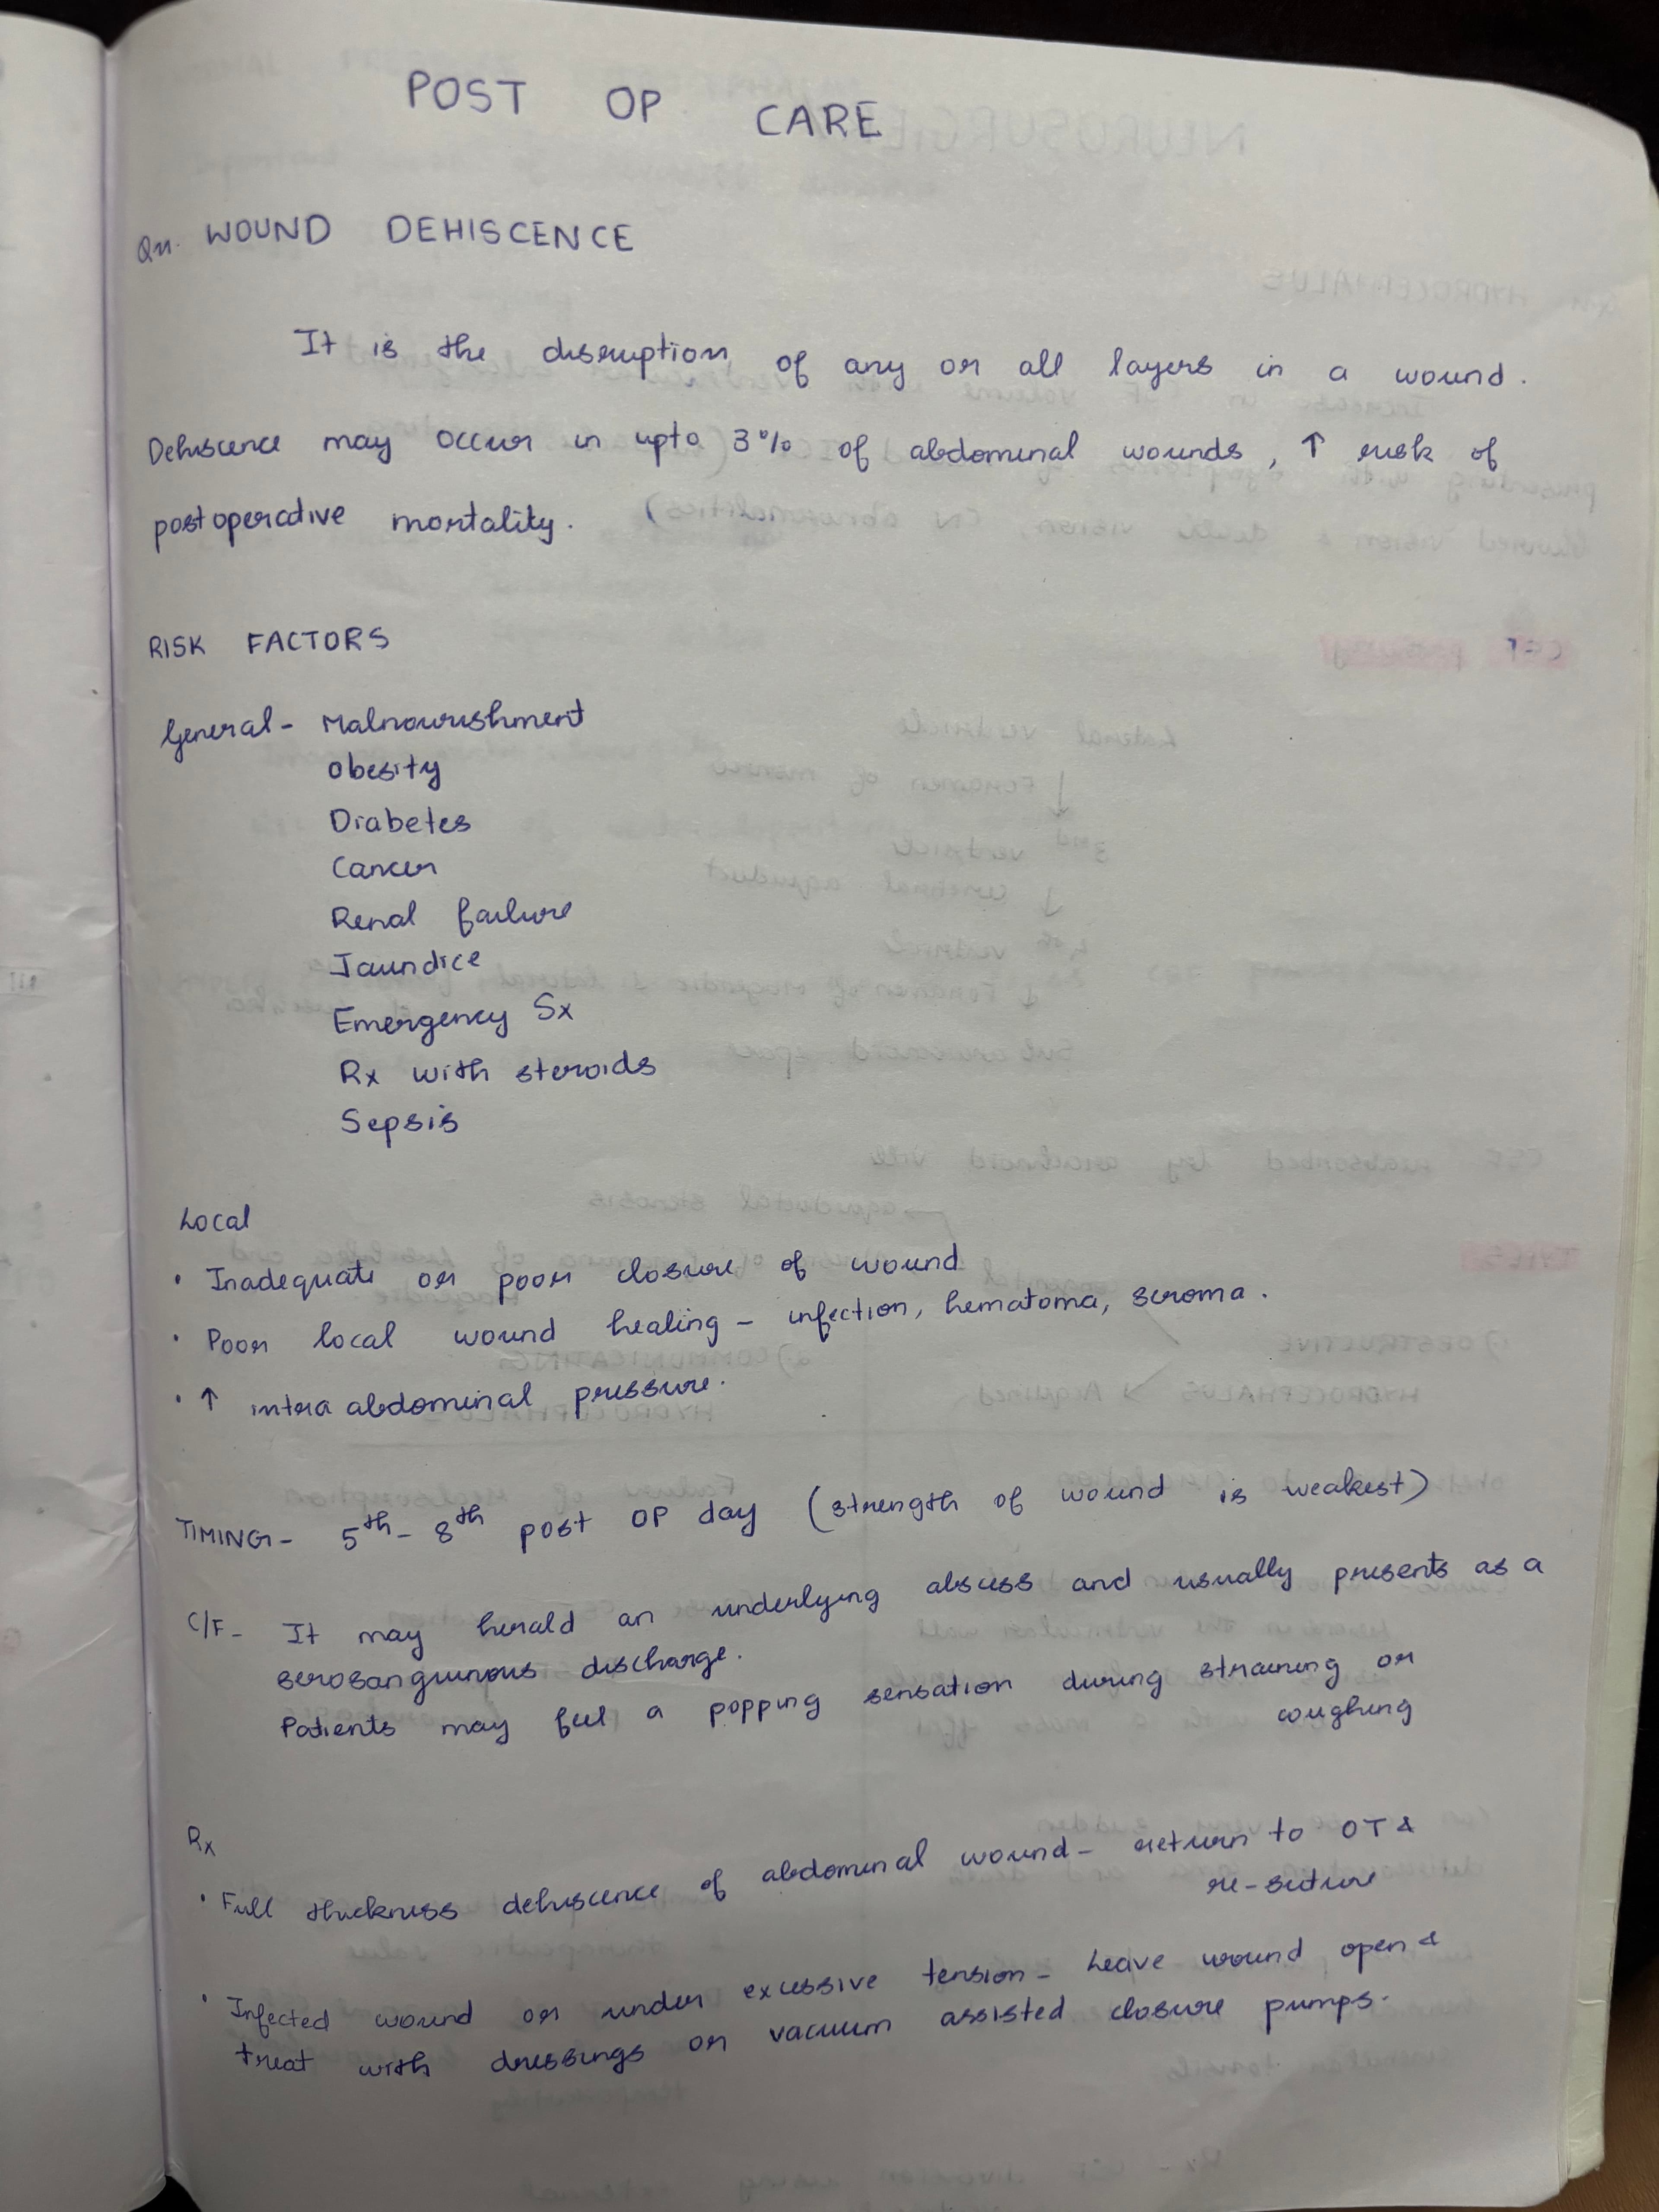 POST OP CARE
Qn. WOUND DEHISCENCE
It is the disruption of any or all layers in a wound.
Dehiscence may occur in upto 3% of abdominal wounds, ↑ risk of
postoperative mortality.
RISK FACTORS
General - Malnourishment
Obesity
Diabetes
Cancer
Renal failure
Jaundice
Emergency Sx
Rx with steroids
Sepsis
Local
• Inadequate or poor closure of wound
• Poor local wound healing - infection, hematoma, seroma.
• ↑ intra abdominal pressure.
TIMING - 5th - 8th post OP day (strength of wound is weakest)
C/F - It may herald an underlying abscess and usually presents as a
serosanguinous discharge.
Patients may feel a popping sensation during straining or
coughing
Rx
• Full thickness dehiscence of abdominal wound - return to OT &
re-suture
• Infected wound or under excessive tension - Leave wound open &
treat with dressings or vacuum assisted closure pumps.